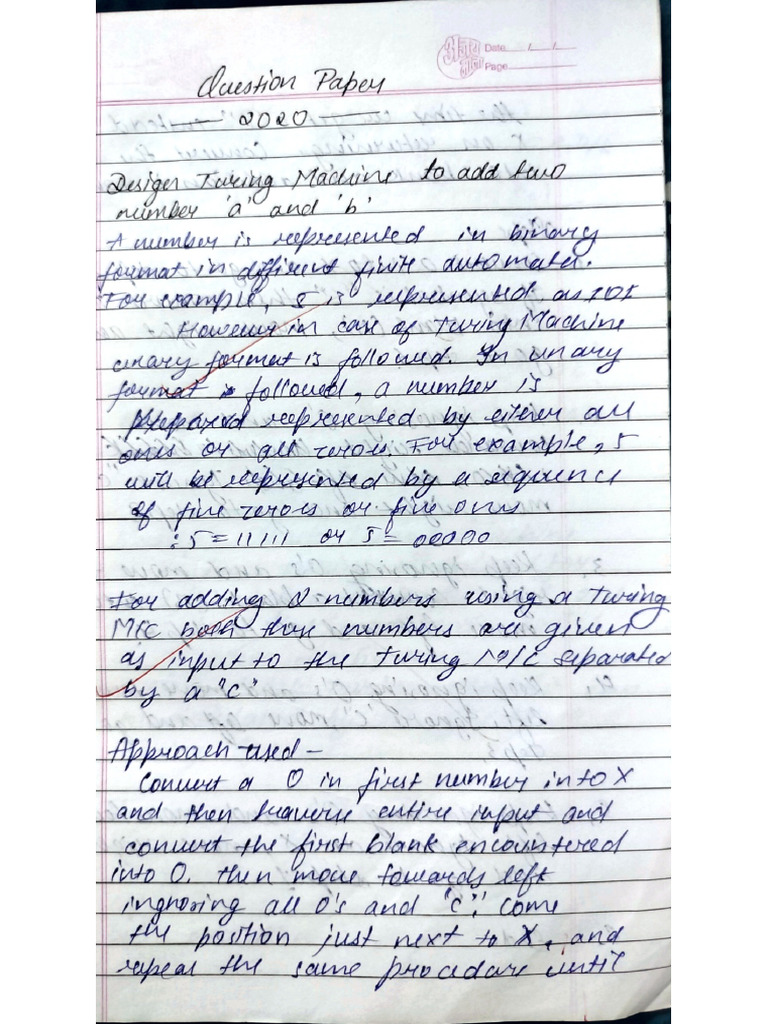 Date / /
Page
Question Paper
2020
Design Turing Machine to add two
number 'a' and 'b'
A number is represented in binary
format in different finite automata.
For example, 5 is represented as 101
However in case of Turing Machine
unary format is followed. In unary
format is followed, a number is
represented by either all
ones or all zeroes. For example, 5
will be represented by a sequence
of five zeroes or five ones
: 5 = 11111 or 5 = 00000
For adding 2 numbers using a Turing
M/C both these numbers are given
as input to the turing M/C separated
by a "C"
Approach used -
Convert a 0 in first number into X
and then traverse entire input and
convert the first blank encountered
into 0. then move towards left
ingnoring all 0's and "c"; come
the position just next to X, and
repeal the same procedare until